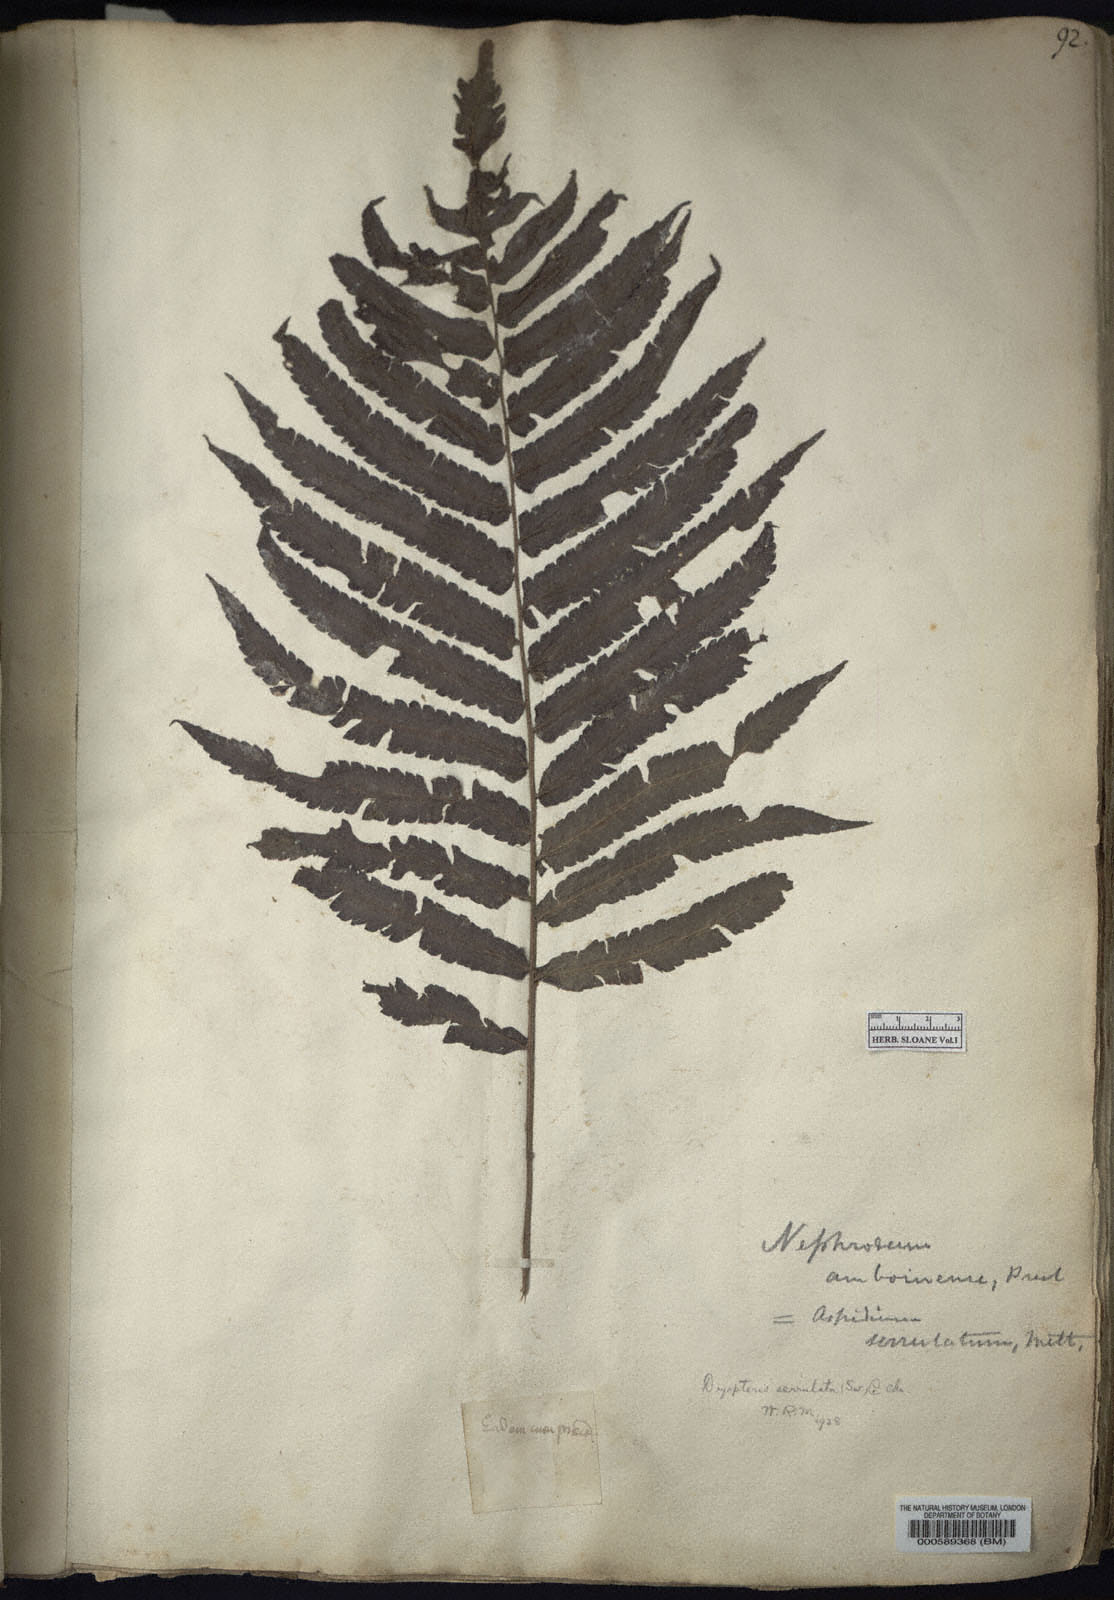 92.
1 2 3
HERB. SLOANE Vol.1
Nephrodium
amboinense, Presl
= Aspidium
serrulatum, Mett.
Dryopteris serrulata (Sw.) C. Chr.
W. R. M. 1928
THE NATURAL HISTORY MUSEUM, LONDON
DEPARTMENT OF BOTANY
000589368 (BM)